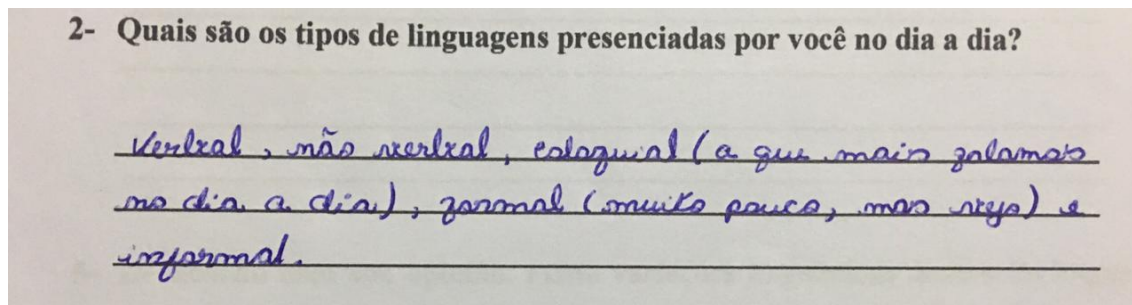 2- Quais são os tipos de linguagens presenciadas por você no dia a dia?
Verbal, não verbal, coloquial (a que mais falamos
no dia a dia), formal (muito pouco, mas vejo) e
informal.